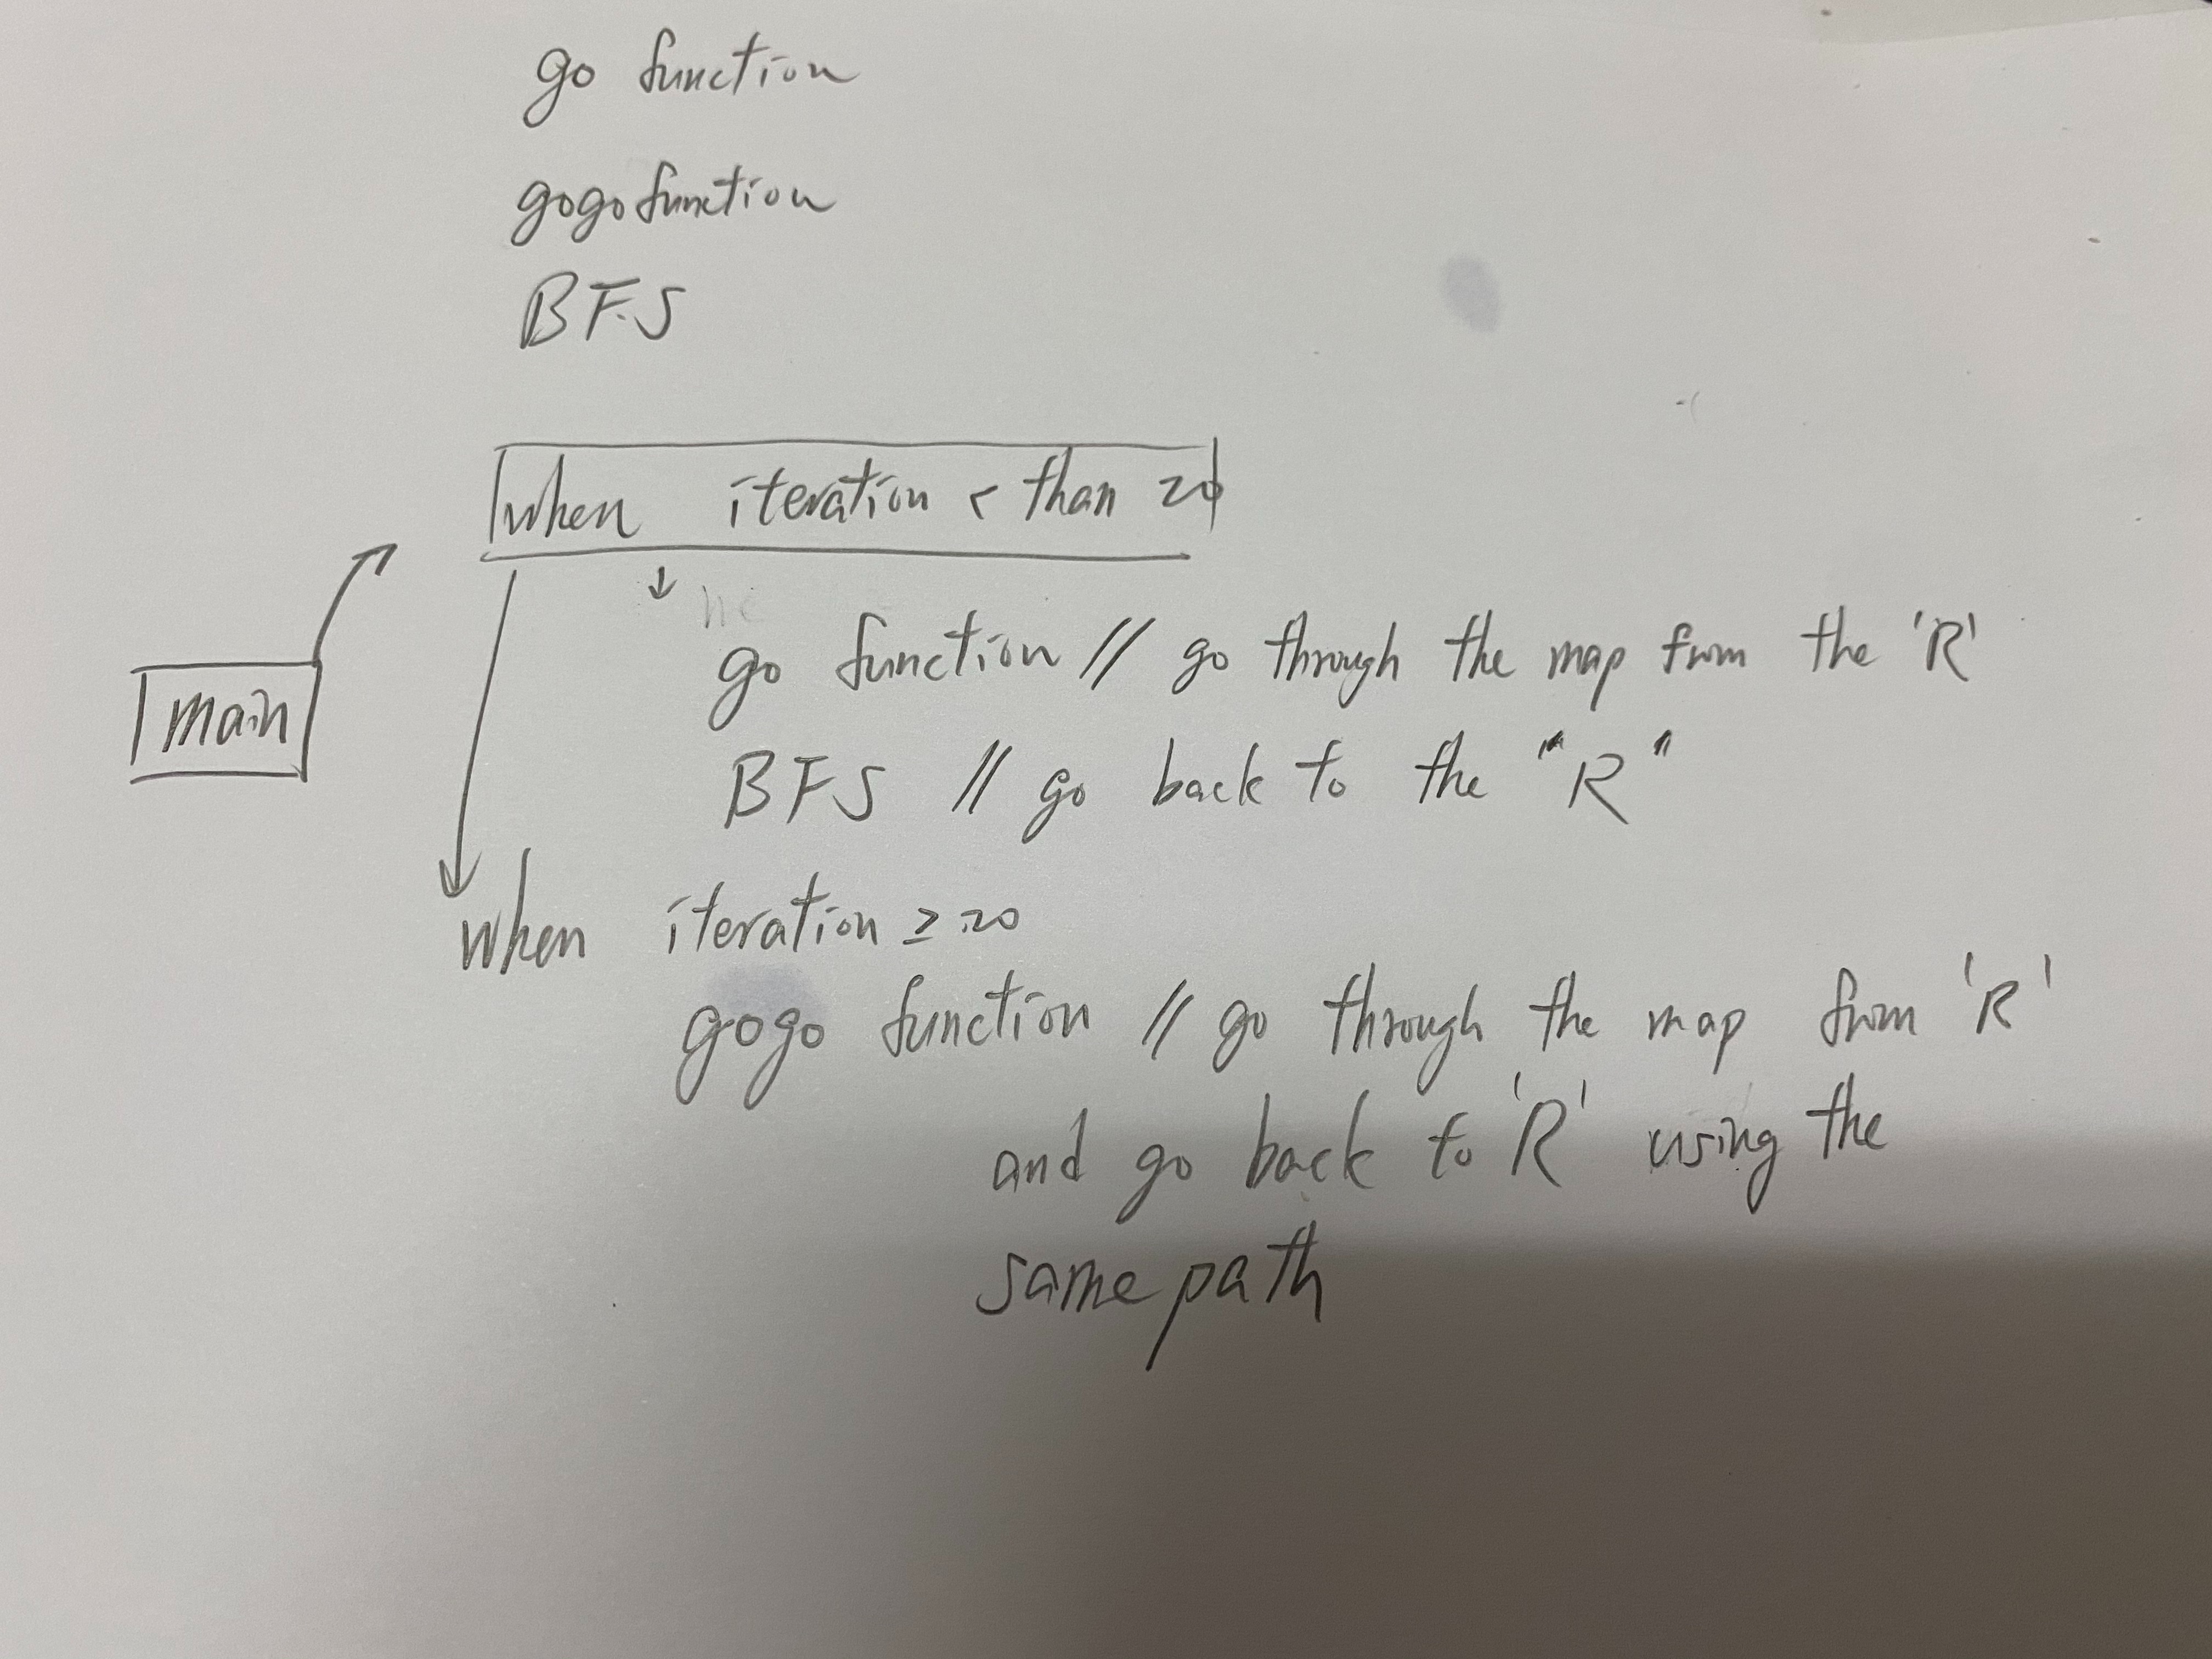 go function
gogo function
BFS
when iteration < than 20
main
go function // go through the map from the 'R'
BFS // go back to the "R"
When iteration ≥ 20
gogo function // go through the map from 'R'
and go back to 'R' using the
same path